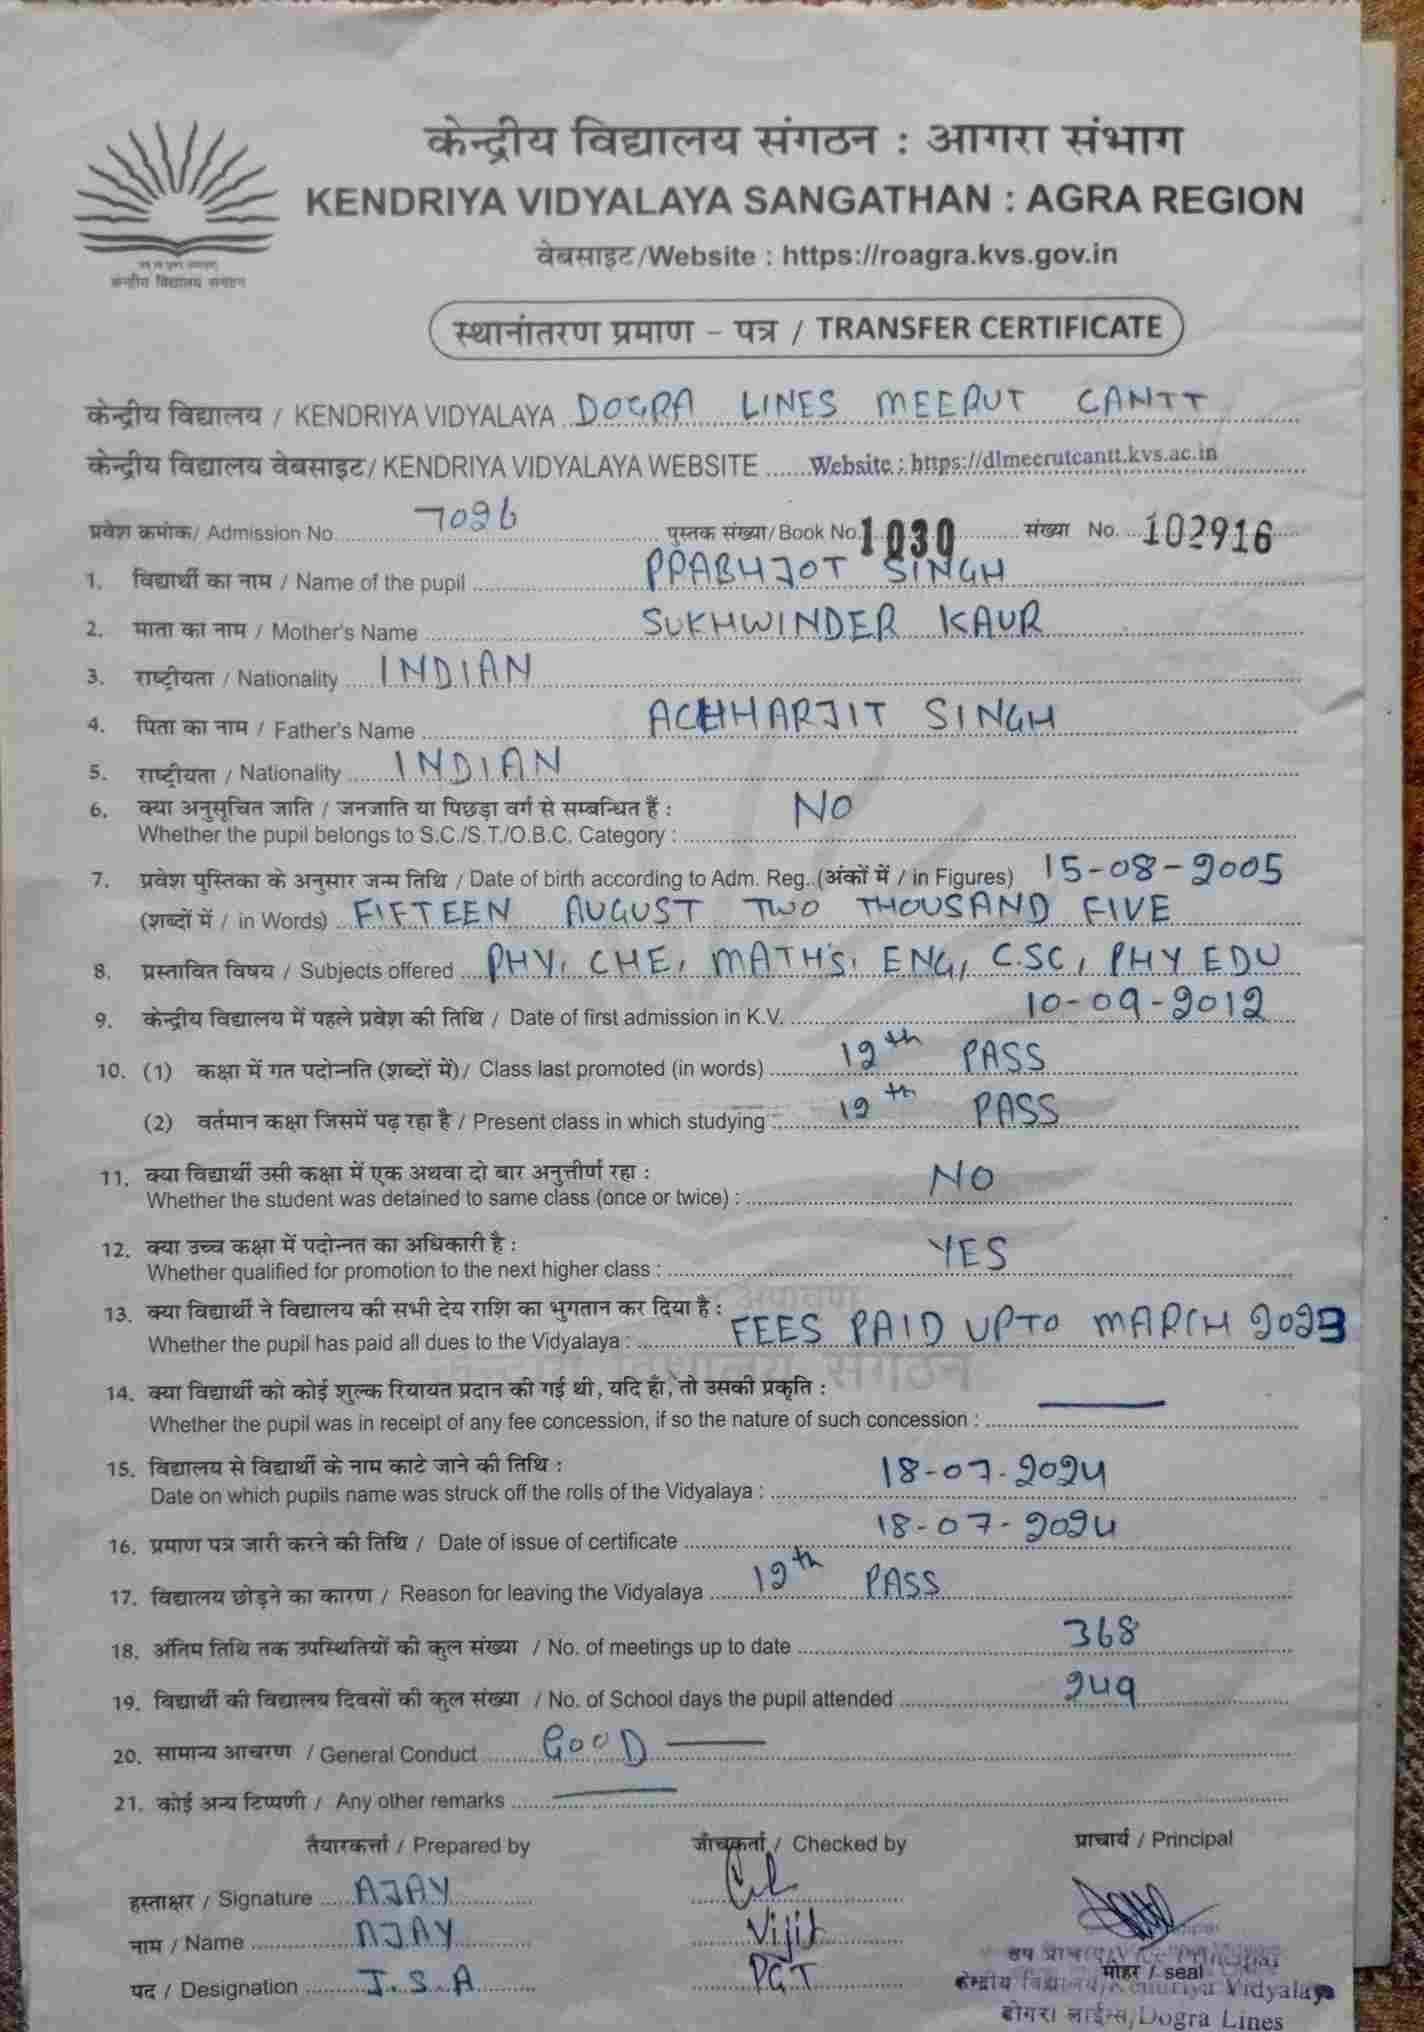 केन्द्रीय विद्यालय संगठन : आगरा संभाग
KENDRIYA VIDYALAYA SANGATHAN : AGRA REGION
वेबसाइट/Website : https://roagra.kvs.gov.in
केन्द्रीय विद्यालय संगठन
स्थानांतरण प्रमाण - पत्र / TRANSFER CERTIFICATE
केन्द्रीय विद्यालय / KENDRIYA VIDYALAYA DOGRA LINES MEERUT CANTT
केन्द्रीय विद्यालय वेबसाइट/ KENDRIYA VIDYALAYA WEBSITE Website : https://dlmeerutcantt.kvs.ac.in
प्रवेश क्रमांक/ Admission No. 7026 पुस्तक संख्या/ Book No. 1030 संख्या No. 102916
1. विद्यार्थी का नाम / Name of the pupil PRABHJOT SINGH
2. माता का नाम / Mother's Name SUKHWINDER KAUR
3. राष्ट्रीयता / Nationality INDIAN
4. पिता का नाम / Father's Name ACHHARJIT SINGH
5. राष्ट्रीयता / Nationality INDIAN
6. क्या अनुसूचित जाति / जनजाति या पिछड़ा वर्ग से सम्बन्धित हैं : NO
Whether the pupil belongs to S.C./S.T./O.B.C. Category :
7. प्रवेश पुस्तिका के अनुसार जन्म तिथि / Date of birth according to Adm. Reg. (अंकों में / in Figures) 15-08-2005
(शब्दों में / in Words) FIFTEEN AUGUST TWO THOUSAND FIVE
8. प्रस्तावित विषय / Subjects offered PHY, CHE, MATH'S, ENG, C.SC, PHY EDU
9. केन्द्रीय विद्यालय में पहले प्रवेश की तिथि / Date of first admission in K.V. 10-09-2012
10. (1) कक्षा में गत पदोन्नति (शब्दों में)/ Class last promoted (in words) 12th PASS
(2) वर्तमान कक्षा जिसमें पढ़ रहा है / Present class in which studying 12th PASS
11. क्या विद्यार्थी उसी कक्षा में एक अथवा दो बार अनुत्तीर्ण रहा : NO
Whether the student was detained to same class (once or twice) :
12. क्या उच्च कक्षा में पदोन्नत का अधिकारी है : YES
Whether qualified for promotion to the next higher class :
13. क्या विद्यार्थी ने विद्यालय की सभी देय राशि का भुगतान कर दिया है :
Whether the pupil has paid all dues to the Vidyalaya : FEES PAID UPTO MARCH 2023
14. क्या विद्यार्थी को कोई शुल्क रियायत प्रदान की गई थी, यदि हाँ, तो उसकी प्रकृति :
Whether the pupil was in receipt of any fee concession, if so the nature of such concession :
15. विद्यालय से विद्यार्थी के नाम काटे जाने की तिथि : 18-07-2024
Date on which pupils name was struck off the rolls of the Vidyalaya :
16. प्रमाण पत्र जारी करने की तिथि / Date of issue of certificate 18-07-2024
17. विद्यालय छोड़ने का कारण / Reason for leaving the Vidyalaya 12th PASS
18. अंतिम तिथि तक उपस्थितियों की कुल संख्या / No. of meetings up to date 368
19. विद्यार्थी की विद्यालय दिवसों की कुल संख्या / No. of School days the pupil attended 249
20. सामान्य आचरण / General Conduct GOOD
21. कोई अन्य टिप्पणी / Any other remarks
तैयारकर्त्ता / Prepared by जाँचकर्ता / Checked by प्राचार्य / Principal
हस्ताक्षर / Signature AJAY
नाम / Name AJAY Vijit
उप प्राचार्य/Vice Principal
मोहर / seal
पद / Designation J.S.A PGT
केन्द्रीय विद्यालय/Kendriya Vidyalaya
डोगरा लाईन्स/Dogra Lines